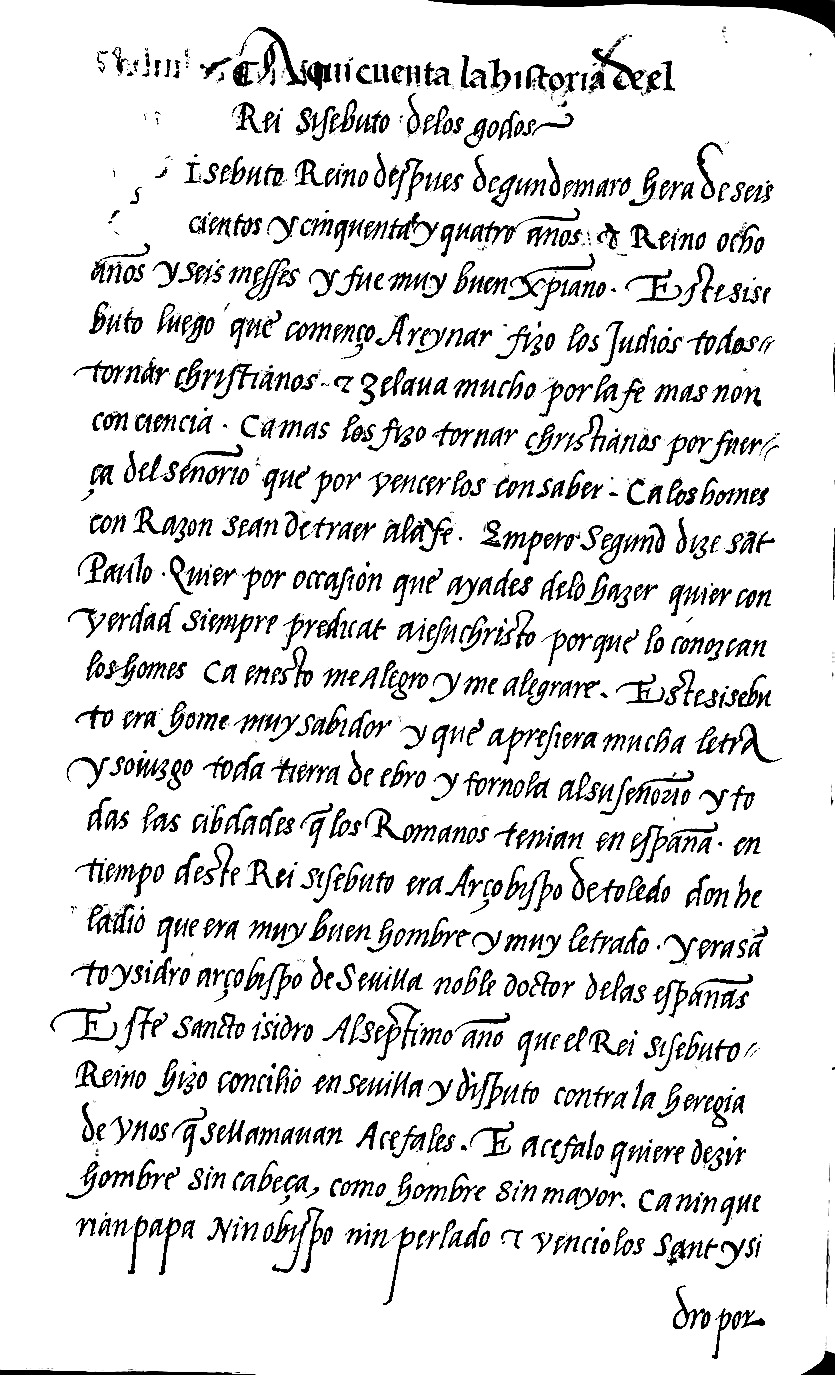 Aqui cuenta la historia de el
Rei Sisebuto delos godos
Isebuto Reino despues de gundemaro hera de seis
cientos y cinquenta y quatro años & Reino ocho
años y seis messes y fue muy buen xp̃iano. Este sise
buto luego que començo A reynar fizo los Judios todos
tornar christianos. & zelaua mucho por la fe mas non
con ciencia. Ca mas los fizo tornar christianos por fuer
ça del señorio que por vencer los con saber. Ca los homes
con Razon sean de traer a la fe. Empero Segund dize sãt
Paulo. Quier por occasion que ayades delo hazer quier con
verdad siempre predicat a iesuchristo porque lo conozcan
los homes Ca en esto me Alegro y me alegrare. Este sisebu
to era home muy sabidor y que apresiera mucha letra
y soiuzgo toda tierra de ebro y tornola al su señorio y to
das las cibdades q̃ los Romanos tenian en españa. en
tiempo deste Rei sisebuto era Arçobispo de toledo don he
ladio que era muy buen hombre y muy letrado. y era sã
to ysidro arçobispo de Sevilla noble doctor delas españas
Este sancto isidro Al septimo año que el Rei sisebuto
Reino hizo concilio en sevilla y disputo contra la heregia
de vnos q̃ se llamauan Acefales. E acefalo quiere dezir
hombre sin cabeça, como hombre sin mayor. Ca nin que
rian papa Nin obispo nin perlado & vencio los Sant ysi
dro por